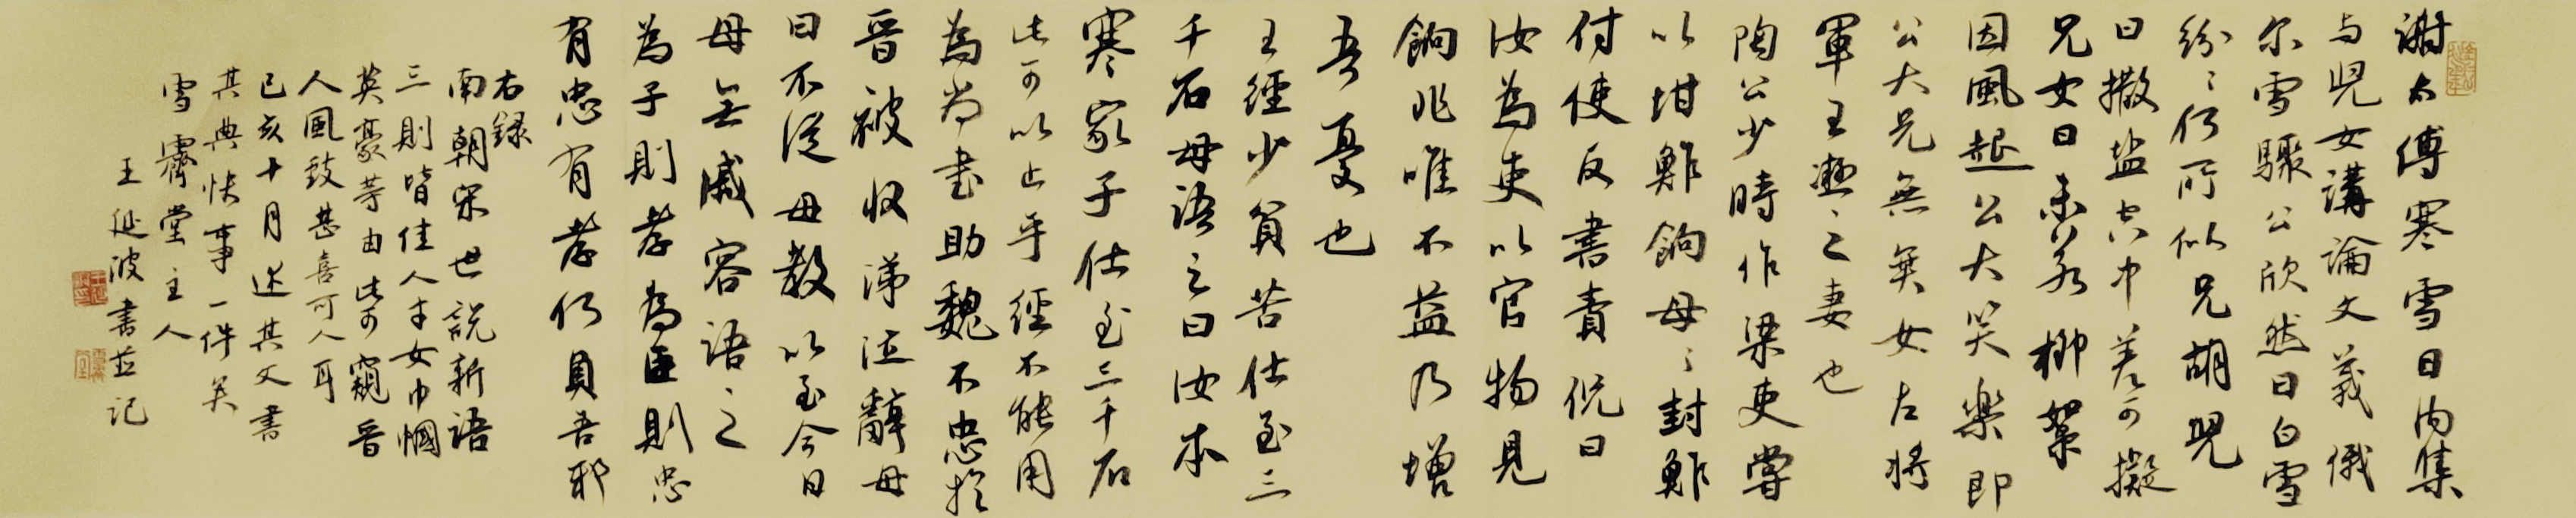 謝太傅寒雪日内集
与児女講論文義俄
尔雪驟公欣然曰白雪
紛〻何所似兄胡児
曰撒盐空中差可擬
兄女曰未若柳絮
因風起公大笑樂即
公大兄無奕女左将
軍王凝之妻也
陶公少時作梁吏嘗
以坩鮓餉母〻封鮓
付使反書責侃曰
汝為吏以官物見
餉非唯不益乃增
吾憂也
王經少貧苦仕至三
千石母語之曰汝本
寒家子仕至三千石
此可以止乎經不能用
為尚書助魏不忠於
晉被收涕泣辭母
曰不從母教以至今日
母無慼容語之
為子則孝為臣則忠
有忠有孝何負吾邪
右録
南朝宋世說新語
三則皆佳人才女巾幗
英豪芳由此可窺晉
人風致甚喜可人耳
己亥十月述其文書
其典快事一件矣
雪霽堂主人
王延波書並记